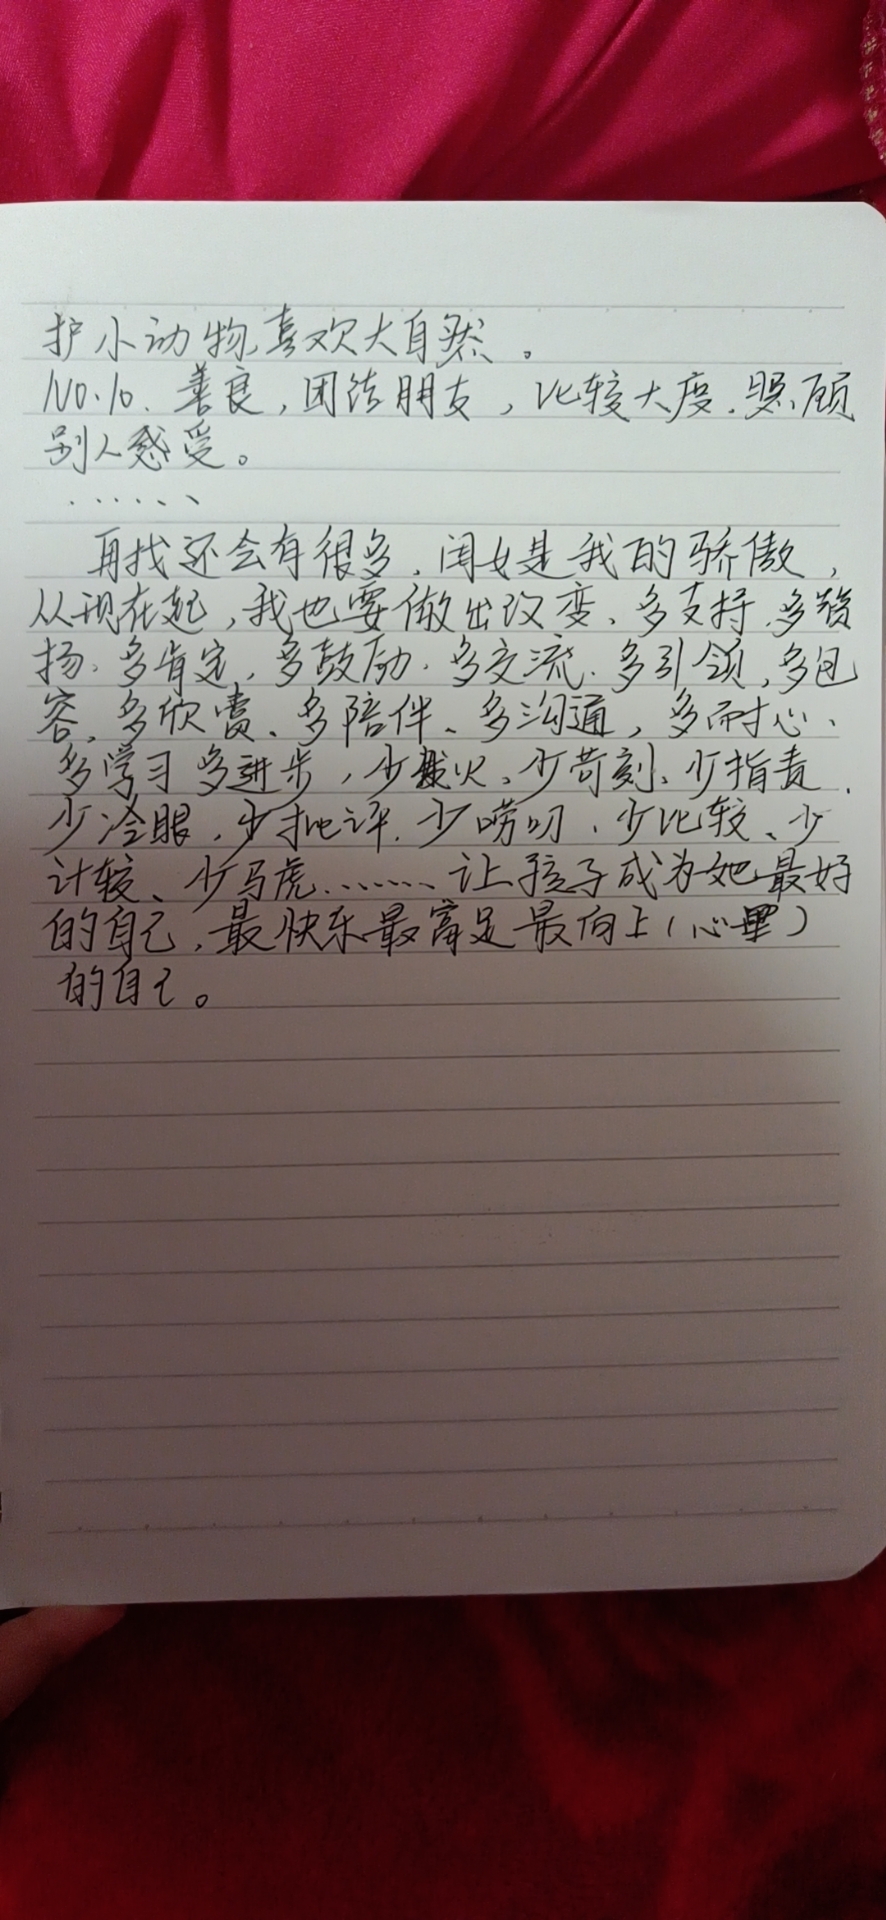 护小动物,喜欢大自然。
NO.10. 善良,团结朋友,比较大度.照顾
别人感受。
······
再找还会有很多.闺女是我的骄傲,
从现在起,我也要做出改变、多支持.多赞
扬.多肯定,多鼓励.多交流.多引领,多包
容、多欣赏、多陪伴、多沟通,多耐心、
多学习多进步,少发火、少苛刻、少指责.
少冷眼.少批评.少唠叨、少比较、少
计较、少马虎·······让孩子成为她最好
的自己,最快乐最富足最向上(心里)
的自己。